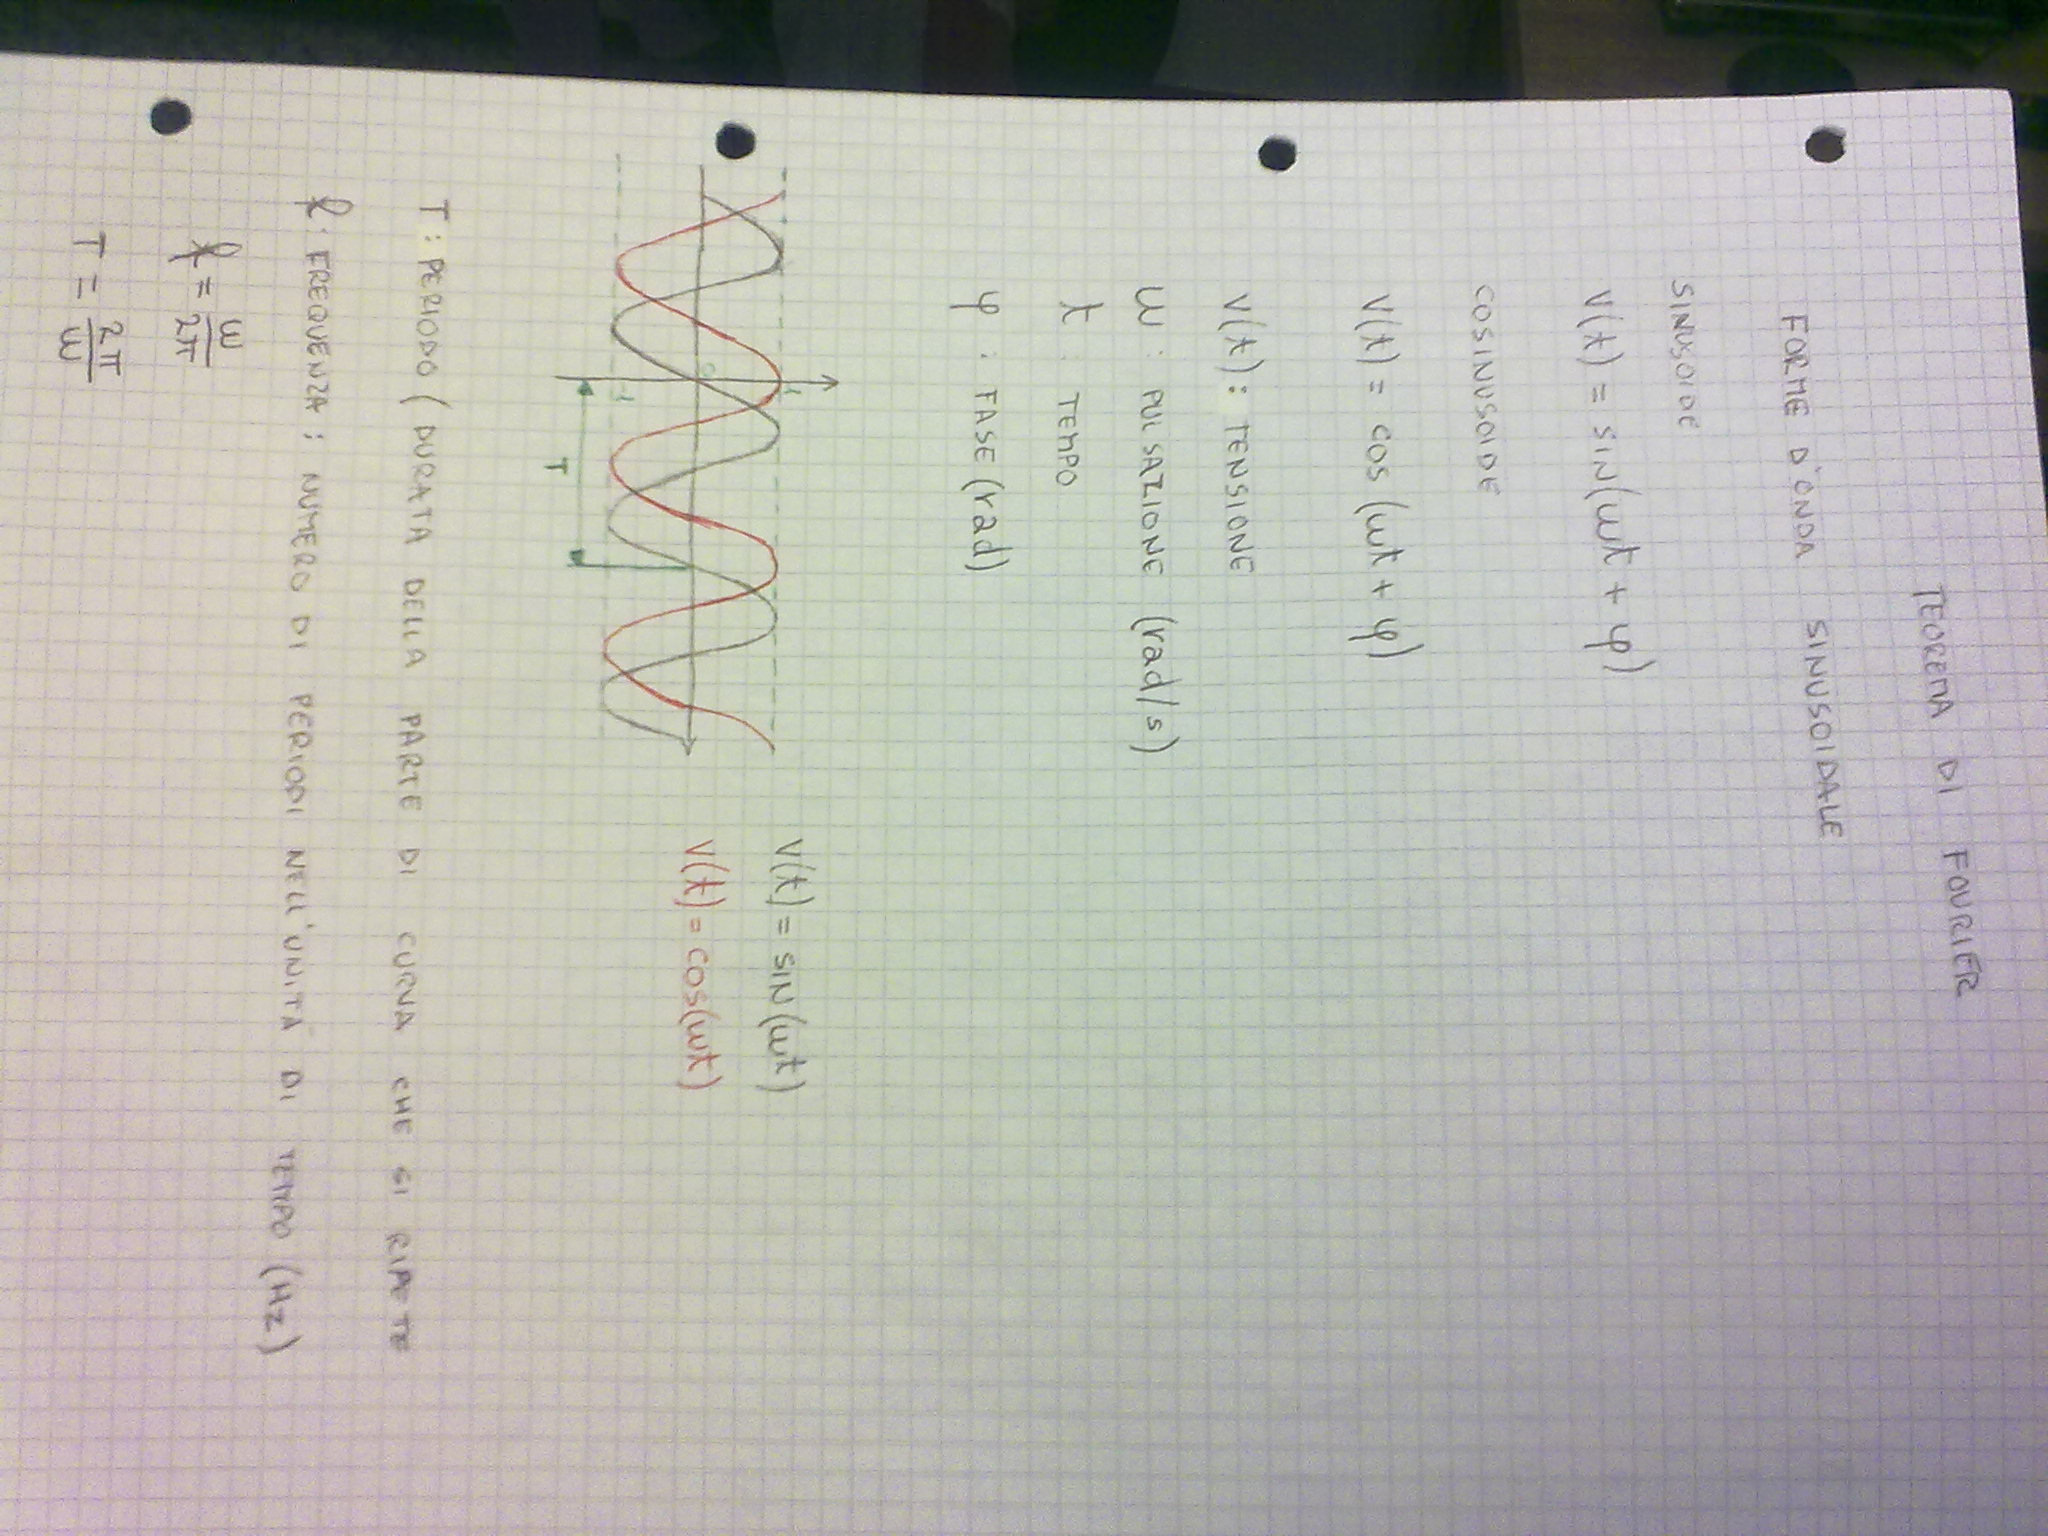 TEOREMA DI FOURIER
FORME D'ONDA SINUSOIDALE
SINUSOIDE
V(t) = SIN(ωt + φ)
COSINUSOIDE
V(t) = COS(ωt + φ)
V(t): TENSIONE
ω: PULSAZIONE (rad/s)
t: TEMPO
φ: FASE (rad)
1
0
-1
T
V(t) = SIN(ωt)
V(t) = COS(ωt)
T: PERIODO ( DURATA DELLA PARTE DI CURVA CHE SI RIPETE
f: FREQUENZA: NUMERO DI PERIODI NELL'UNITÀ DI TEMPO (Hz)
f = ω/2π
T = 2π/ω